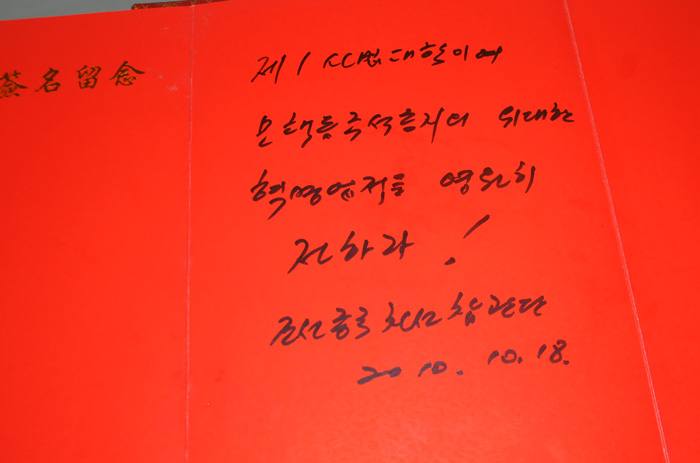 簽名留念
제1사범대학이여
모택동주석동지의 위대한
혁명업적을 영원히
전하라!
조선중국친선참관단
2010. 10. 18.